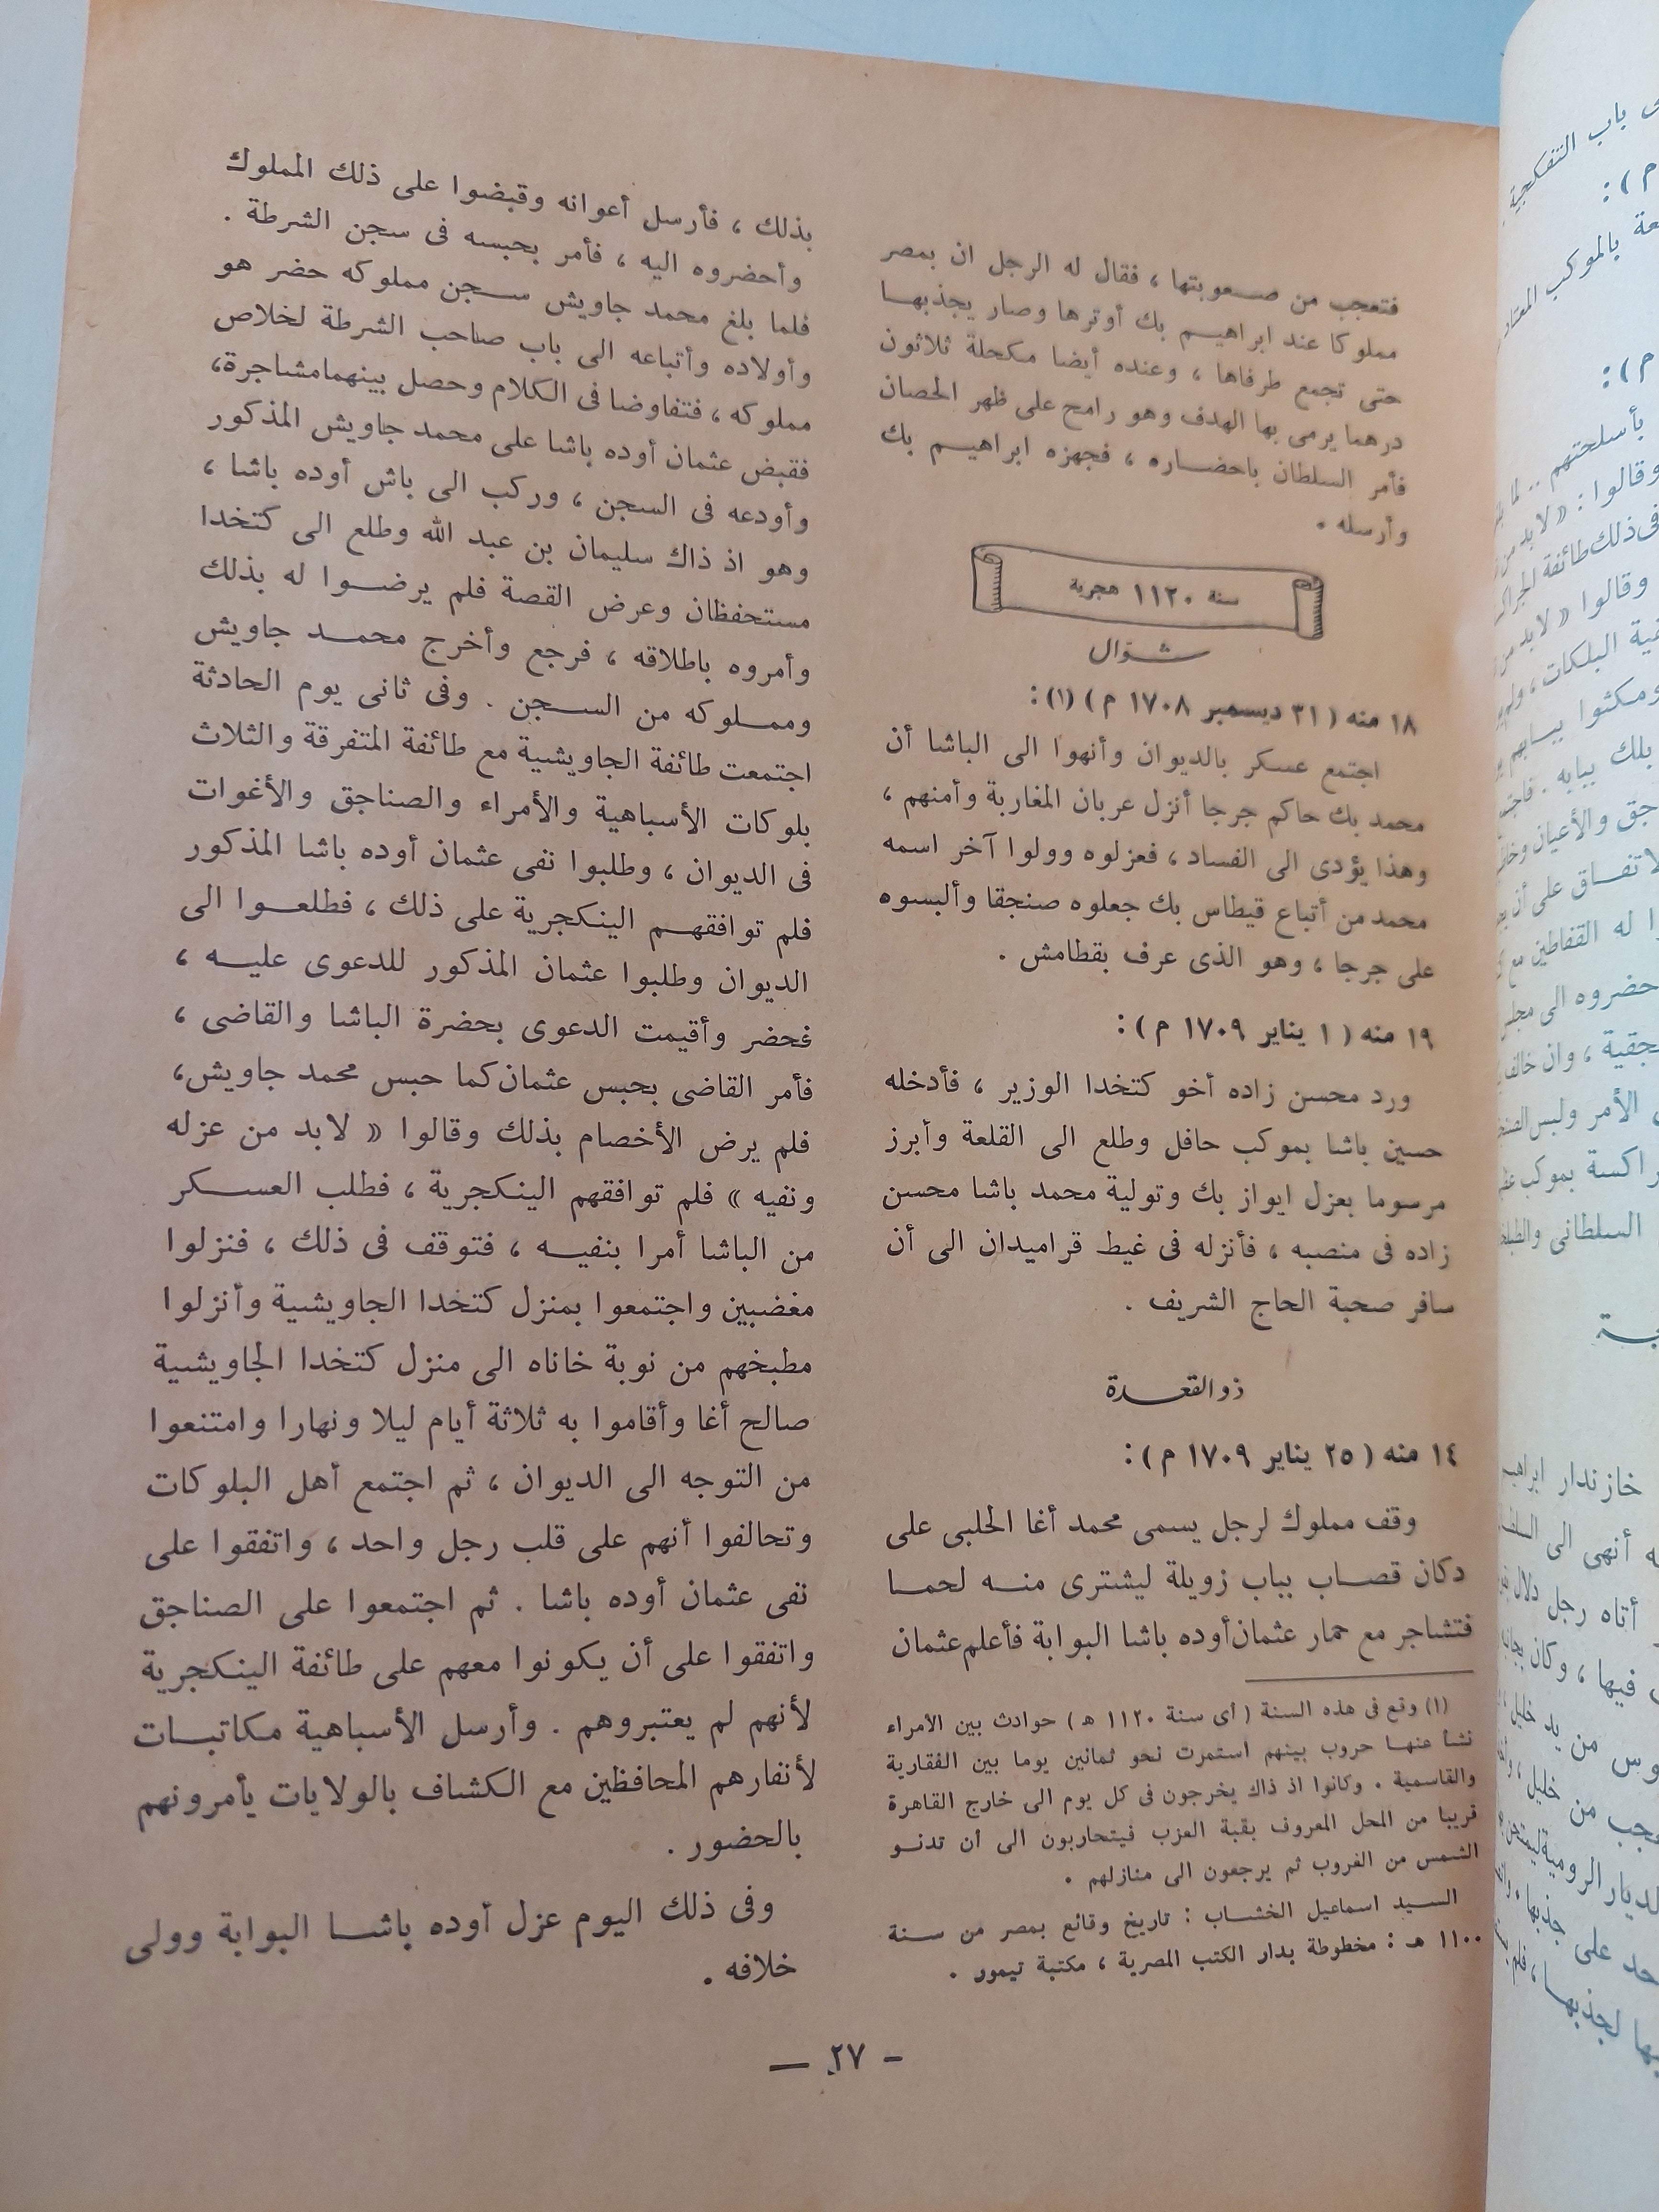 فتعجب من صعوبتها ، فقال له الرجل ان بمصر
مملوكا عند ابراهيم بك أوترها وصار يجذبها
حتى تجمع طرفاها ، وعنده أيضا مكحلة ثلاثون
درهما يرمى بها الهدف وهو رامح على ظهر الحصان
فأمر السلطان باحضاره ، فجهزه ابراهيم بك
وأرسله .
سنة ١١٢٠ هجرية
شوال
١٨ منه ( ٣١ ديسمبر ١٧٠٨ م ) (١) :
اجتمع عسكر بالديوان وأنهوا الى الباشا أن
محمد بك حاكم جرجا أنزل عربان المغاربة وأمنهم ،
وهذا يؤدى الى الفساد ، فعزلوه وولوا آخر اسمه
محمد من أتباع قيطاس بك جعلوه صنجقا وألبسوه
على جرجا ، وهو الذى عرف بقطامش .
١٩ منه ( ١ يناير ١٧٠٩ م ) :
ورد محسن زاده أخو كتخدا الوزير ، فأدخله
حسين باشا بموكب حافل وطلع الى القلعة وأبرز
مرسوما بعزل ايواز بك وتولية محمد باشا محسن
زاده فى منصبه ، فأنزله فى غيط قراميدان الى أن
سافر صحبة الحاج الشريف .
ذو القعدة
١٤ منه ( ٢٥ يناير ١٧٠٩ م ) :
وقف مملوك لرجل يسمى محمد أغا الحلبى على
دكان قصاب بباب زويلة ليشترى منه لحما
فتشاجر مع حمار عثمان أوده باشا البوابة فأعلم عثمان
(١) وقع فى هذه السنة ( أى سنة ١١٢٠ هـ ) حوادث بين الأمراء
نشأ عنها حروب بينهم استمرت نحو ثمانين يوما بين الفقارية
والقاسمية . وكانوا اذ ذاك يخرجون فى كل يوم الى خارج القاهرة
قريبا من المحل المعروف بقبة العزب فيتحاربون الى أن تدنو
الشمس من الغروب ثم يرجعون الى منازلهم .
السيد اسماعيل الخشاب : تاريخ وقائع بمصر من سنة
١١٠٠ هـ : مخطوطة بدار الكتب المصرية ، مكتبة تيمور .
بذلك ، فأرسل أعوانه وقبضوا على ذلك المملوك
وأحضروه اليه ، فأمر بحبسه فى سجن الشرطة .
فلما بلغ محمد جاويش سجن مملوكه حضر هو
وأولاده وأتباعه الى باب صاحب الشرطة لخلاص
مملوكه ، فتفاوضا فى الكلام وحصل بينهما مشاجرة،
فقبض عثمان أوده باشا على محمد جاويش المذكور
وأودعه فى السجن ، وركب الى باش أوده باشا ،
وهو اذ ذاك سليمان بن عبد الله وطلع الى كتخدا
مستحفظان وعرض القصة فلم يرضوا له بذلك
وأمروه باطلاقه ، فرجع وأخرج محمد جاويش
ومملوكه من السجن . وفى ثانى يوم الحادثة
اجتمعت طائفة الجاويشية مع طائفة المتفرقة والثلاث
بلوكات الأسباهية والأمراء والصناجق والأغوات
فى الديوان ، وطلبوا نفى عثمان أوده باشا المذكور
فلم توافقهم الينكجرية على ذلك ، فطلعوا الى
الديوان وطلبوا عثمان المذكور للدعوى عليه ،
فحضر وأقيمت الدعوى بحضرة الباشا والقاضى ،
فأمر القاضى بحبس عثمان كما حبس محمد جاويش،
فلم يرض الأخصام بذلك وقالوا « لابد من عزله
ونفيه » فلم توافقهم الينكجرية ، فطلب العسكر
من الباشا أمرا بنفيه ، فتوقف فى ذلك ، فنزلوا
مغضبين واجتمعوا بمنزل كتخدا الجاويشية وأنزلوا
مطبخهم من نوبة خاناه الى منزل كتخدا الجاويشية
صالح أغا وأقاموا به ثلاثة أيام ليلا ونهارا وامتنعوا
من التوجه الى الديوان ، ثم اجتمع أهل البلوكات
وتحالفوا أنهم على قلب رجل واحد ، واتفقوا على
نفى عثمان أوده باشا . ثم اجتمعوا على الصناجق
واتفقوا على أن يكونوا معهم على طائفة الينكجرية
لأنهم لم يعتبروهم . وأرسل الأسباهية مكاتبات
لأنفارهم المحافظين مع الكشاف بالولايات يأمرونهم
بالحضور .
وفى ذلك اليوم عزل أوده باشا البوابة وولى
خلافه .
— ٢٧ —
باب التفكجية
م ) :
بالموكب المعتاد
م ) :
بأسلحتهم ..
وقالوا : « لابد من
فى ذلك طائفة
وقالوا « لابد من
البلكات ،
ومكثوا ببابهم
بلك ببابه .
والأعيان
على أن
له القفاطين مع
حضروه الى
، وان
الأمر ولبس
بموكب
السلطانى
خازندار
أنهى الى
أتاه رجل دلال
فيها ، وكان
من يد خليل
من خليل ،
الرومية
على جذبها
لجذبها ، فلم